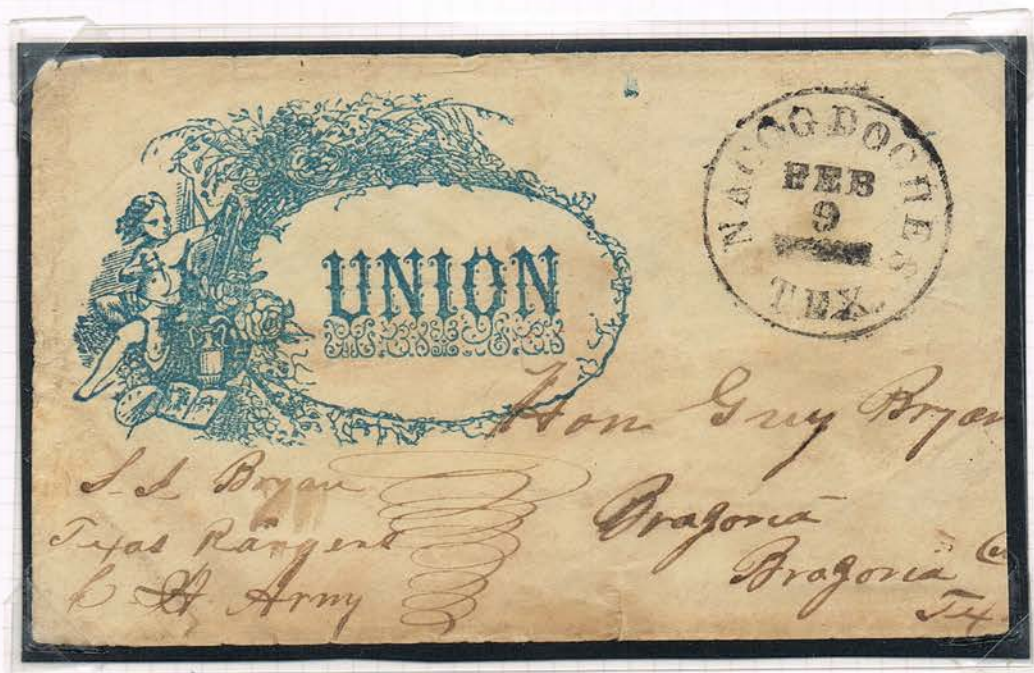 UNION
NACOGDOCHES
FEB
9
TEX.
Hon Guy Bryan
Brazoria
Brazoria Co
Tx
S. J. Bryan
Texas Rangers
C S Army